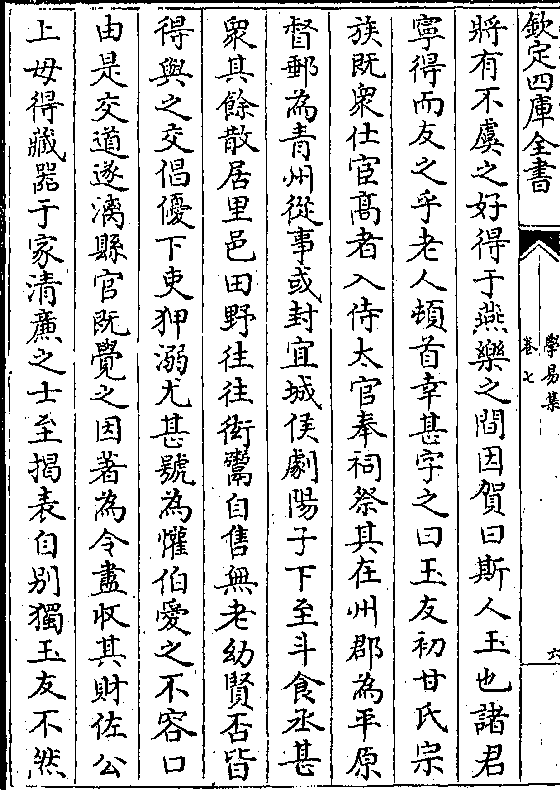 欽定四庫全書
學易集
卷七
六
將有不虞之好得于燕樂之間因賀曰斯人玉也諸君
寧得而友之乎老人頓首幸甚字之曰玉友初甘氏宗
族既衆仕宦髙者入侍太官奉祠祭其在州郡為平原
督郵為青州從事或封宜城侯劇陽子下至斗食丞甚
衆其餘散居里邑田野往往衒鬻自售無老幼賢否皆
得與之交倡優下吏狎溺尤甚號為懽伯愛之不容口
由是交道遂漓縣官既覺之因著為令盡收其財佐公
上毋得藏器于家清亷之士至揭表自别獨玉友不然